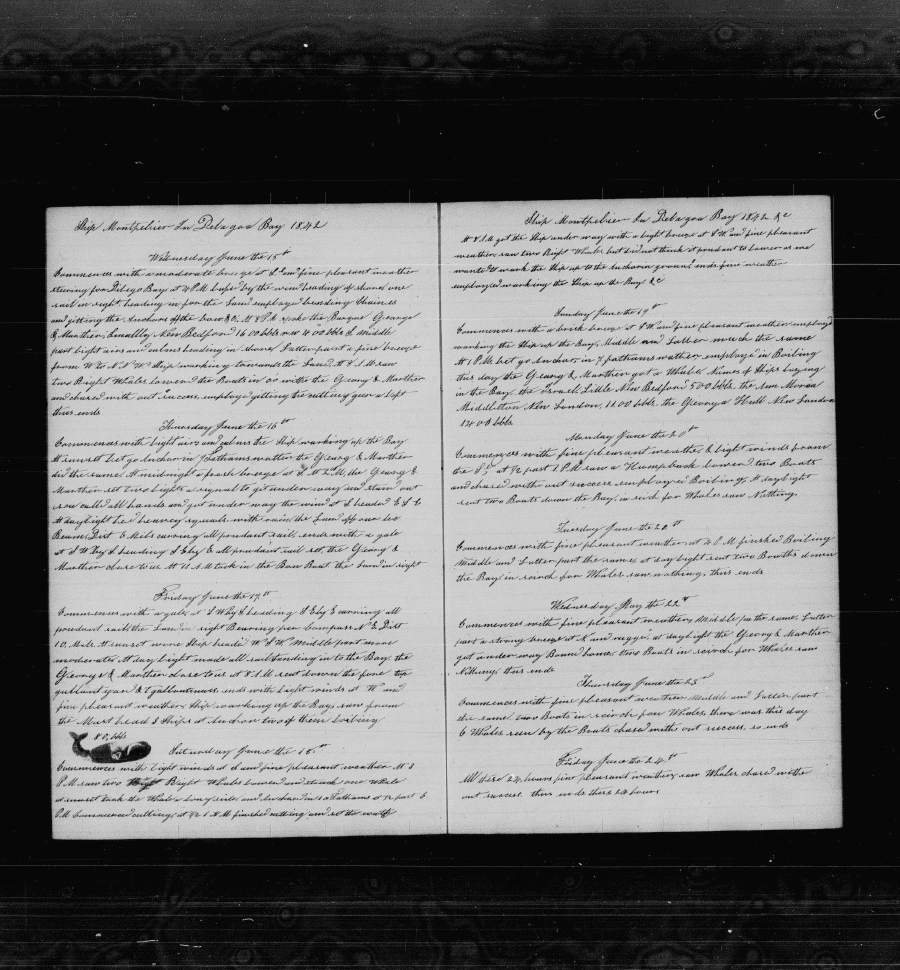 Ship Montpelier In Delagoa Bay 1842
Wednesday June the 15th
Commences with a moderate breeze at S. and fine pleasant weather
stearing for Delego Bay at 4 P.M. the wind heading of shore one
sail in sight heading in for the Land employed bending Chaines
and gitting the Anchors off the bow & at 8 P.M. spoke the Barque George
& Marther New Bedford 1600 bbls 400 bbls Middle
part light airs and calms heading in shore Latter part a fine breeze
from W to S S W Ship working towards the Land At 8 A.M. saw
two Right Whales lowered the Boats in Co with the Georg & Marther
and chased with out success employed gitting the cutting gear a loft
thus ends
Thursday June the 16th
Commences with light airs and calms the Ship working up the Bay
At sunset let go Anchor in 7 Fathams wather the Georg & Marther
did the same At midnight a fresh breeze at the Georg &
Marther set two lights a signal to git under way and stand out
called all hands and got under way the wind at S headed E S E
At daylight heavey squals with rain the Land off our lee
Beam Dist 6 Mils carrying all prudant sail ends with a gale
at S W by S heading S E by E all prudant sail set the Georg &
Marther close to us At 11 A.M. tack in the Barn in sight
Friday June the 17th
Commences with a gale at S W by S heading S E by E carrying all
prudant sail the Land in sight Bearing per Compass N & Dist
10 Mils At sunset wore Ship heade W S W Middle part more
moderates At day light made all sail standing in to the Bay the
George & Marther close to us at 8 A.M. sent down the fore top
gallant yard & ends with light winds at W and
fine pleasant weather Ship working up the Bay saw from
the Mast head 5 Ships at Anchor two of them boiling
80 bbls
Saturday June the 18th
Commences with light winds at S and fine pleasant weather At 3
P.M. saw two Right Whales lowered and struck one Whale
at sunset took the Whale a long side and Anchored in 10 Fathams at ½ past 6
P.M. Commenced cutting at ½ 1 A.M. finished cutting and set the watch
Ship Montpelier In Delagoa Bay 1842 &c
At 8 A.M. got the Ship under way with a light breeze at S W and fine pleasant
weather saw two Right Whales but did not think it prudant to lower as we
wanted to work the Ship up to the Anchoring ground ends fine weather
employed working the Ship up the Bay &c
Sunday June the 19th
Commences with a brisk breeze at S W and fine pleasant weather employed
working the Ship up the Bay Middle and Latter much the same
At 1 P.M. let go Anchor in 7 fathams wather employed in Boiling
this day the Georg & Marther got a Whale Names of Ships laying
in the Bay the New Bedford 500 bbls the
Middleton New London 1100 bbls the New London
1200 bbls
Monday June the 20th
Commences with fine pleasant weather & light winds from
the at ½ past 1 P.M. saw a Humpback lowered two Boats
and chased with out success employed Boiling At daylight
sent two Boats down the Bay in serch for Whales saw Nothing
Tuesday June the 20th
Commences with fine pleasant weather at 4 P.M. finished Boiling
Middle and Latter part the same at day light sent two Boats down
the Bay in serch for Whales saw nothing thus ends
Wednesday May the 22th
Commences with fine pleasant weather Middle parts the same Latter
part a strong breeze at S and at daylight the Georg & Marther
got under way Bound home two Boats in serch for Whales saw
Nothing thus ends
Thursday June the 23th
Commences with fine pleasant weather Middle and Latter part
the same two Boats in serch for Whales there was this day
6 Whales seen by the Boats chased with out success so ends
Friday June the 24th
All these 24 hours fine pleasant weather saw Whales chased withe
out success thus ends these 24 hours